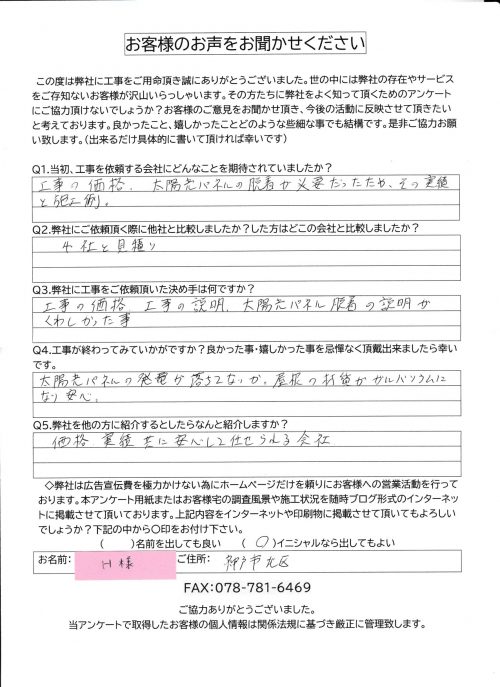 お客様のお声をお聞かせください
この度は弊社に工事をご用命頂き誠にありがとうございました。世の中には弊社の存在やサービス
をご存知ないお客様が沢山いらっしゃいます。その方たちに弊社をよく知って頂くためのアンケート
にご協力頂けないでしょうか？お客様のご意見をお聞かせ頂き、今後の活動に反映させて頂きたい
と考えております。良かったこと、嬉しかったことどのような些細な事でも結構です。是非ご協力お願
い致します。（出来るだけ具体的に書いて頂ければ幸いです）
Q1.当初、工事を依頼する会社にどんなことを期待されていましたか？
工事の価格、太陽光パネルの脱着が必要だったため、その実績
と施工例。
Q2.弊社にご依頼頂く際に他社と比較しましたか？した方はどこの会社と比較しましたか？
4社と見積り
Q3.弊社に工事をご依頼頂いた決め手は何ですか？
工事の価格 工事の説明、太陽光パネル脱着の説明が
くわしかった事
Q4.工事が終わってみていかがですか？良かった事・嬉しかった事を忌憚なく頂戴出来ましたら幸い
です。
太陽光パネルの発電が落ちてないか、屋根の材質がガルバリウムに
なり安心。
Q5.弊社を他の方に紹介するとしたらなんと紹介しますか？
価格 実績共に安心して任せられる会社
◇弊社は広告宣伝費を極力かけない為にホームページだけを頼りにお客様への営業活動を行って
おります。本アンケート用紙またはお客様宅の調査風景や施工状況を随時ブログ形式のインターネッ
トに掲載させて頂いております。上記内容をインターネットや印刷物に掲載させて頂いてもよろしい
でしょうか？下記の中から〇印をお付け下さい。
（　　）名前を出しても良い　（ 〇 ）イニシャルなら出してもよい
お名前： H様 ご住所： 神戸市北区
FAX：078-781-6469
ご協力ありがとうございました。
当アンケートで取得したお客様の個人情報は関係法規に基づき厳正に管理致します。